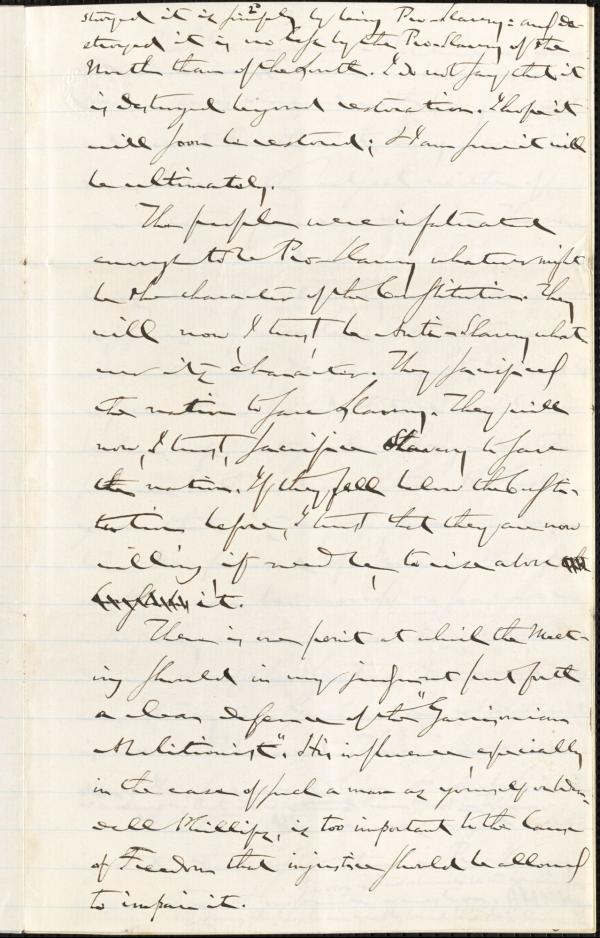 2
stroyed it is simply by being Pro-Slavery: and de-
stroyed it is no less by the Pro-Slavery of the
North than of the South. I do not say that it
is destroyed beyond restoration. I hope it
will soon be restored; & I am sure it will
be ultimately.
The people were infatuated
enough to be Pro-Slavery whatever might
be the character of the Constitution. They
will now I trust be Anti-Slavery what
ever its character. They sacrificed
the nation to save Slavery. They will
now, I trust, sacrifice Slavery to save
the nation. If they fell below the Consti-
tution before, I trust that they are now
willing if need be, to rise above the
it.
There is one point at which the Meet-
ing should in my judgment put forth
a clear defence of the "Garrisonian
Abolitionist". His influence, especially
in the case of such a man as yourself or Wen-
dell Phillips, is too important to the cause
of Freedom that injustice should be allowed
to impair it.